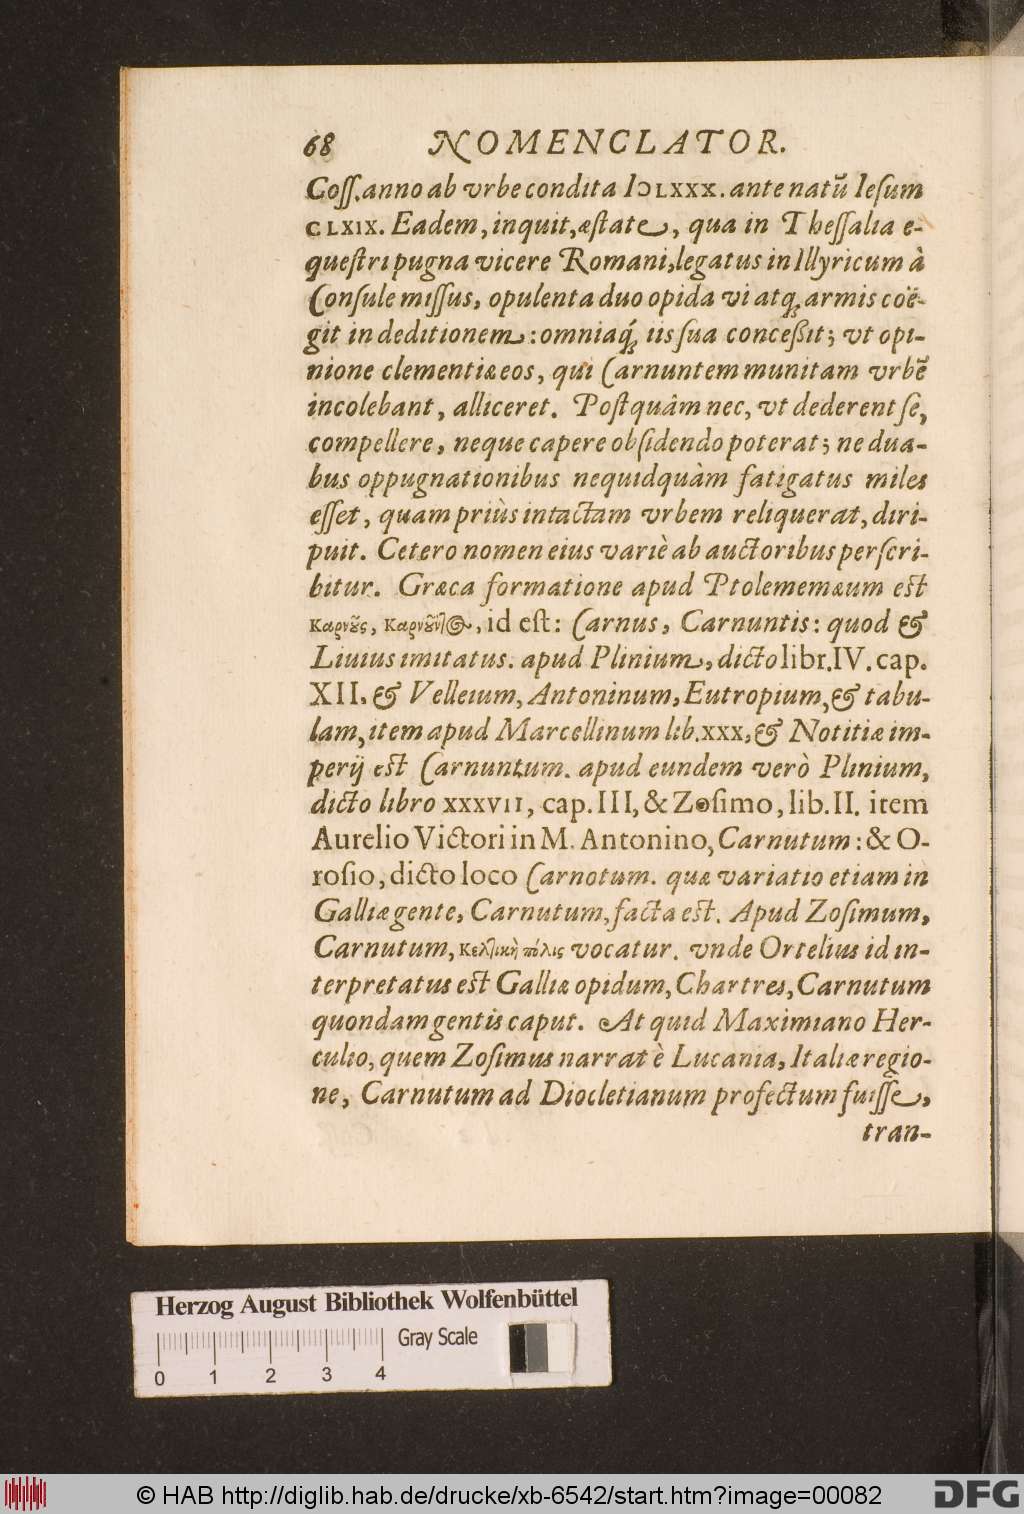 68 NOMENCLATOR.
Coſſ. anno ab vrbe condita IↃLXXX. ante natũ Ieſum
CLXIX. Eadem, inquit, æſtate, qua in Theſſalia e-
queſtri pugna vicere Romani, legatus in Illyricum à
Conſule miſſus, opulenta duo opida vi atq; armis coë-
git in deditionem: omniaq́; iis ſua conceßit; vt opi-
nione clementiæ eos, qui Carnuntem munitam vrbẽ
incolebant, alliceret. Poſtquâm nec, vt dederent ſe,
compellere, neque capere obſidendo poterat; ne dua-
bus oppugnationibus nequidquàm fatigatus miles
eſſet, quam priùs intactam vrbem reliquerat, diri-
puit. Cetero nomen eius variè ab auctoribus perſcri-
bitur. Græca formatione apud Ptolememæum est
Καρνȣ͂ς, Καρνȣ͂ν]ος, id eſt: Carnus, Carnuntis: quod &
Liuius imitatus. apud Plinium, dicto libr. IV. cap.
XII. & Velleium, Antoninum, Eutropium, & tabu-
lam, item apud Marcellinum lib. XXX, & Notitiæ im-
perij est Carnuntum. apud eundem verò Plinium,
dicto libro XXXVII, cap. III, & Zoſimo, lib. II. item
Aurelio Victori in M. Antonino, Carnutum: & O-
roſio, dicto loco Carnotum. quæ variatio etiam in
Galliæ gente, Carnutum, facta est. Apud Zoſimum,
Carnutum, Κελ]ικὴ πόλις vocatur. vnde Ortelius id in-
terpretatus est Galliæ opidum, Chartres, Carnutum
quondam gentis caput. At quid Maximiano Her-
culio, quem Zoſimus narrat è Lucania, Italiæ regio-
ne, Carnutum ad Diocletianum profectum fuiſſe,
tran-
Herzog August Bibliothek Wolfenbüttel
Gray Scale
0 1 2 3 4
© HAB http://diglib.hab.de/drucke/xb-6542/start.htm?image=00082
DFG